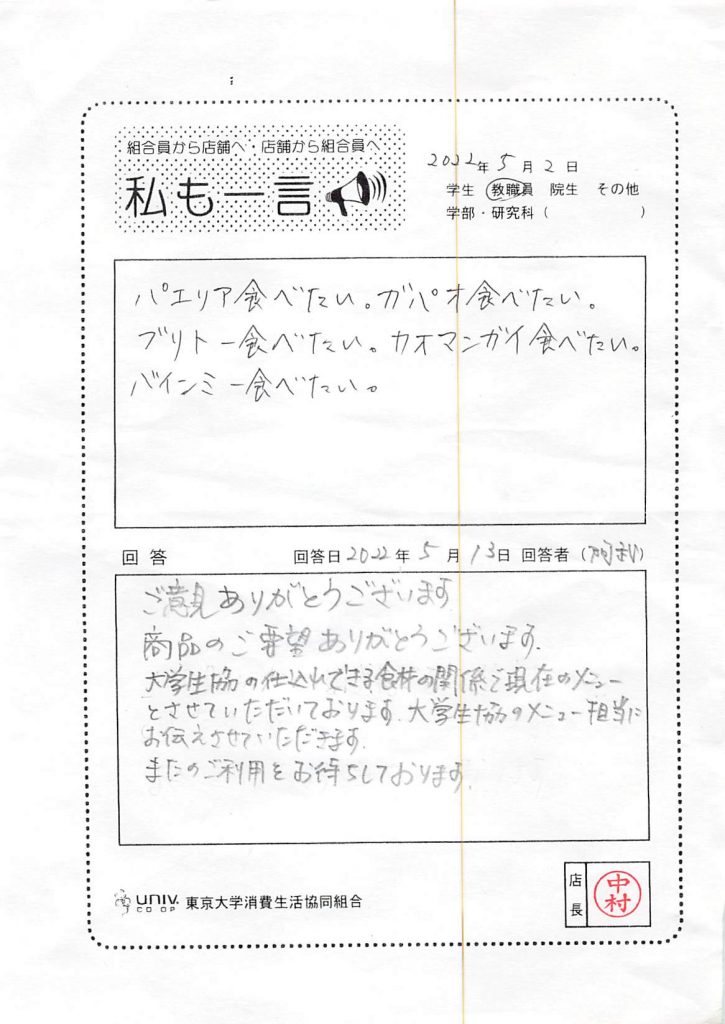 組合員から店舗へ・店舗から組合員へ
私も一言
2022年5月2日
学生 教職員 院生 その他
学部・研究科( )
パエリア食べたい。ガパオ食べたい。
ブリトー食べたい。カオマンガイ食べたい。
バインミー食べたい。
回答 回答日2022年5月13日 回答者( )
ご意見ありがとうございます
商品のご要望ありがとうございます.
大学生協の仕込れできる食材の関係で現在のメニュー
とさせていただいております.大学生協のメニュー担当に
お伝えさせていただきます.
またのご利用をお待ちしております.
UNIV.
CO-OP
東京大学消費生活協同組合
店長
中村